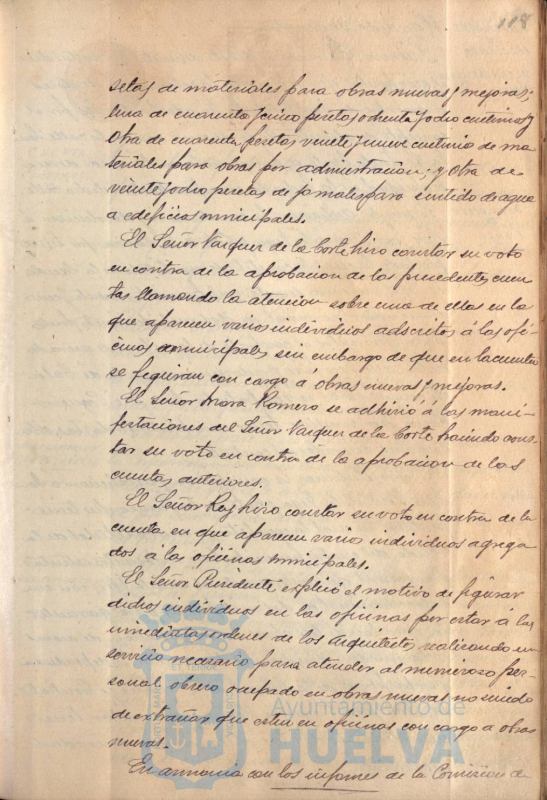 118
setas de materiales para obras nuevas y mejoras;
una de cuarenta y cinco pesetas ochenta y ocho centimos y
otra de cuarenta pesetas veinte y nueve centimos de ma
teriales para obras por administracion; y otra de
veinte y ocho pesetas de jornales para surtido de agua
a edificios municipales.
El Señor Vazquez de la Corte hizo constar su voto
en contra de la aprobacion de las precedentes cuen
tas llamando la atencion sobre una de ellas en la
que aparecen varios individuos adscritos á las ofi-
cinas municipales, sin embargo de que en la cuenta
se figuran con cargo á obras nuevas y mejoras.
El Señor Mora Romero se adhirió á las mani-
festaciones del Señor Vazquez de la Corte haciendo cons-
tar su voto en contra de la aprobacion de las
cuentas anteriores.
El Señor Rey hizo constar su voto en contra de la
cuenta en que aparecen varios individuos agrega
dos á las oficinas municipales.
El Señor Presidente esplicó el motivo de figurar
dichos individuos en las oficinas por estar á las
inmediatas ordenes de los Arquitectos realizando un
servicio necesario para atender al numeroso per-
sonal obrero ocupado en obras nuevas no siendo
de extrañar que esten en oficinas con cargo a obras
nuevas.
En armonia con los informes de la Comision de
Ayuntamiento de
HUELVA